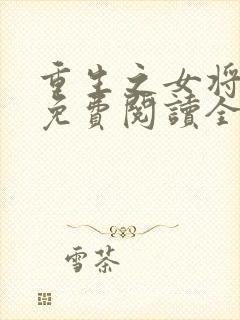 重生之女将
免費閱讀全
雪茶